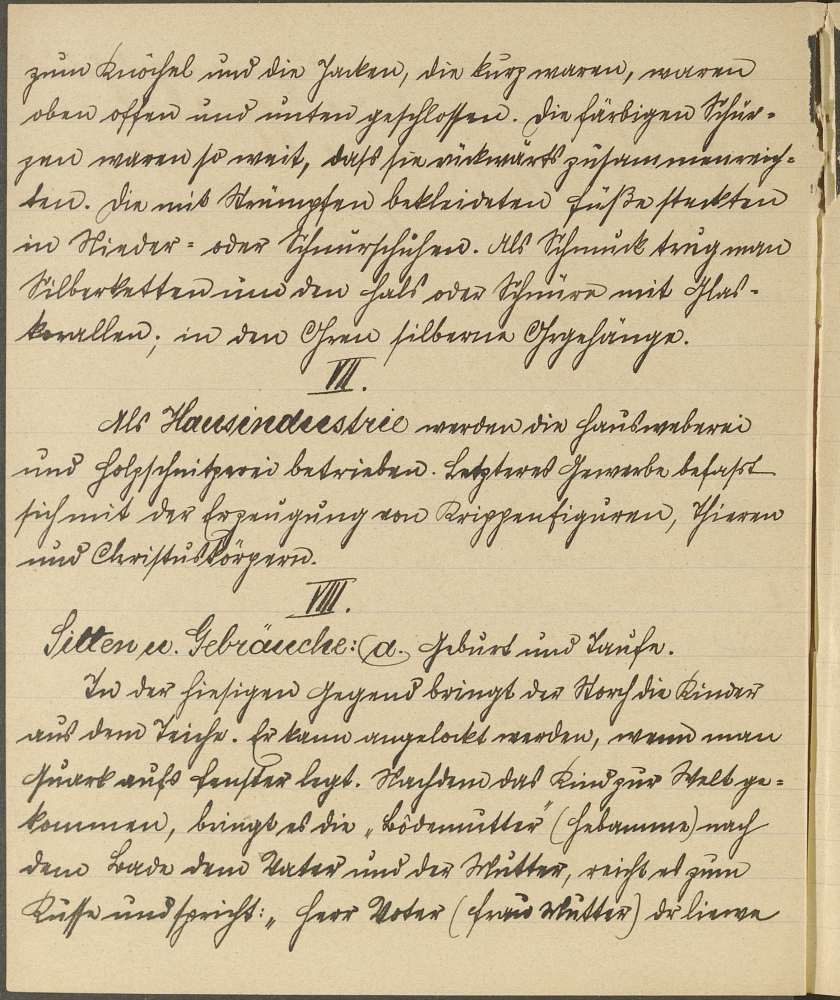 zum Knöchel und die Jacken, die kurz waren, waren
oben offen und unten geschlossen. Die färbigen Schür-
zen waren so weit, dass sie rückwärts zusammenreich-
ten. Die mit Strümpfen bekleideten Füße steckten
in Nieder- oder Schnürschuhen. Als Schmuck trug man
Silberketten um den Hals oder Schnüre mit Glas-
korallen; in den Ohren silberne Ohrgehänge.
VII.
Als Hausindustrie werden die Hausweberei
und Holzschnitzerei betrieben. Letzteres Gewerbe befaßt
sich mit der Erzeugung von Krippenfiguren, Thieren
und Christuskörpern.
VIII.
Sitten u. Gebräuche: (a. Geburt und Taufe.
In der hiesigen Gegend bringt der Storch die Kinder
aus dem Teiche. Er kann angelockt werden, wenn man
Quark aufs Fenster legt. Nachdem das Kind zur Welt ge-
kommen, bringt es die „Bödemutter" (Hebamme) nach
dem Bade dem Vater und der Mutter, reicht es zum
Küsse und spricht: „Herr Voter (Frau Mutter) dr liewe